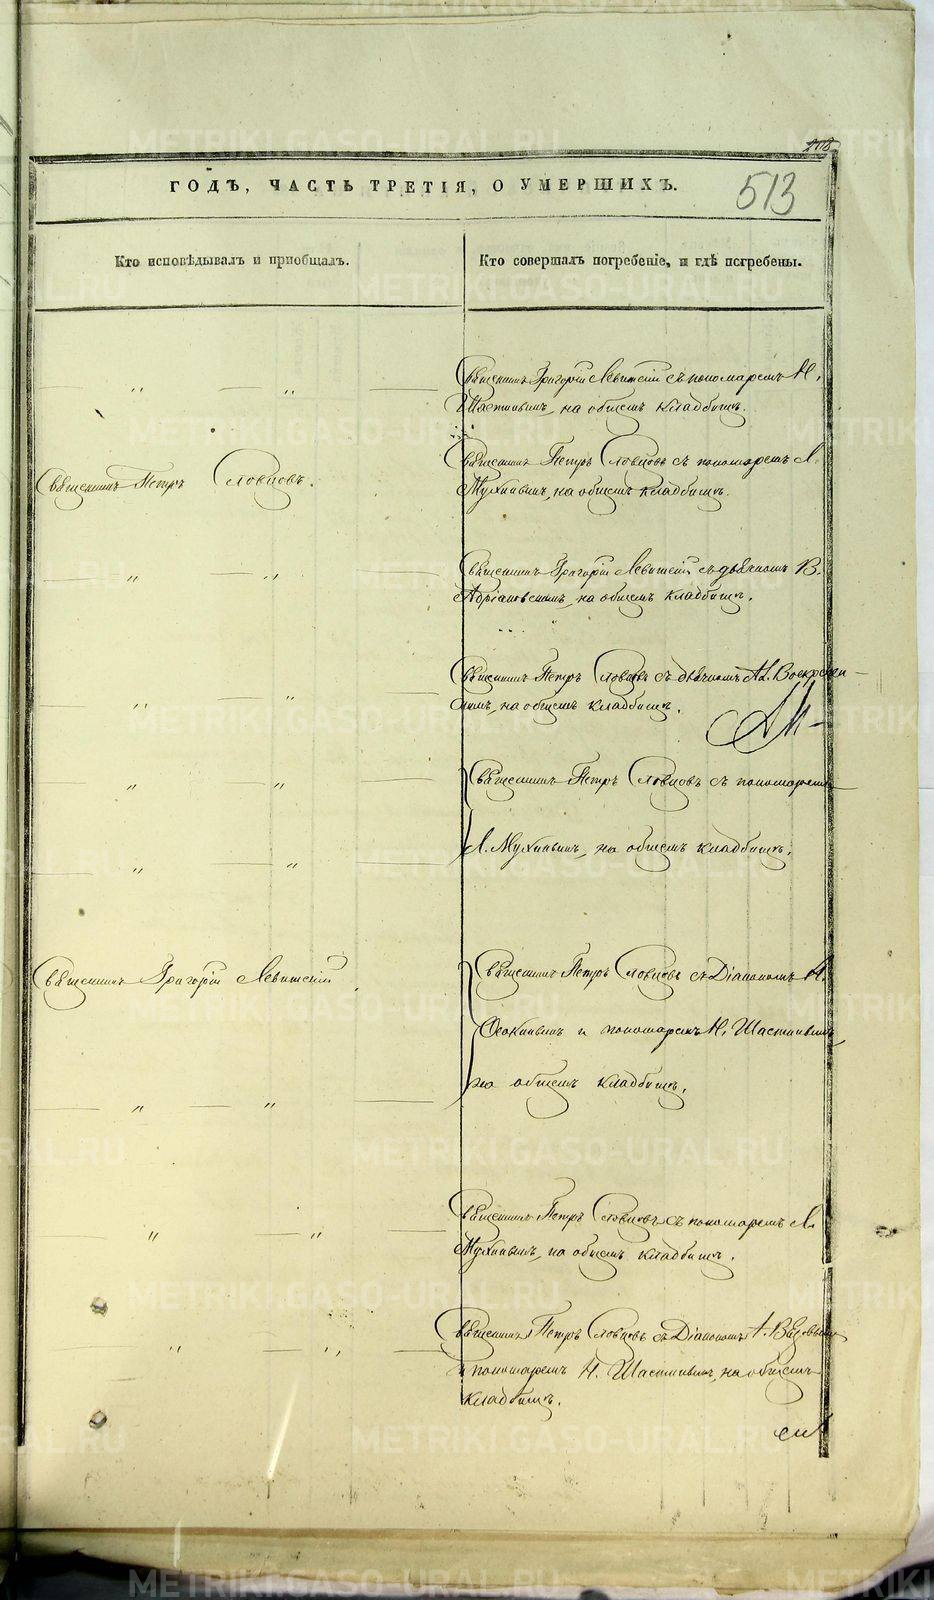 ГОДЪ, ЧАСТЬ ТРЕТІЯ, О УМЕРШИХЪ.
513
Кто исповѣдывалъ и пріобщалъ.
Кто совершалъ погребеніе, и гдѣ погребены.
Священникъ Григорій Левитскій съ пономаремъ Н.
Шастинымъ, на общемъ кладбищѣ.
Священникъ Петръ Словцовъ.
Священникъ Петръ Словцовъ съ пономаремъ Л.
Мухинымъ, на общемъ кладбищѣ.
Священникъ Григорій Левитскій съ дьячкомъ В.
Адріановскимъ, на общемъ кладбищѣ.
Священникъ Петръ Словцовъ съ дьячкомъ Ал. Воскресен-
скимъ, на общемъ кладбищѣ.
Священникъ Петръ Словцовъ съ пономаремъ
Л. Мухинымъ, на общемъ кладбищѣ.
Священникъ Григорій Левитскій
Священникъ Петръ Словцовъ съ Діакономъ А.
и пономаремъ Н. Шастинымъ,
на общемъ кладбищѣ.
Священникъ Петръ Словцовъ съ пономаремъ Л.
Мухинымъ, на общемъ кладбищѣ.
Священникъ Петръ Словцовъ съ Діакономъ А.
и пономаремъ Н. Шастинымъ, на общемъ
кладбищѣ.
METRIKI.GASO-URAL.RU